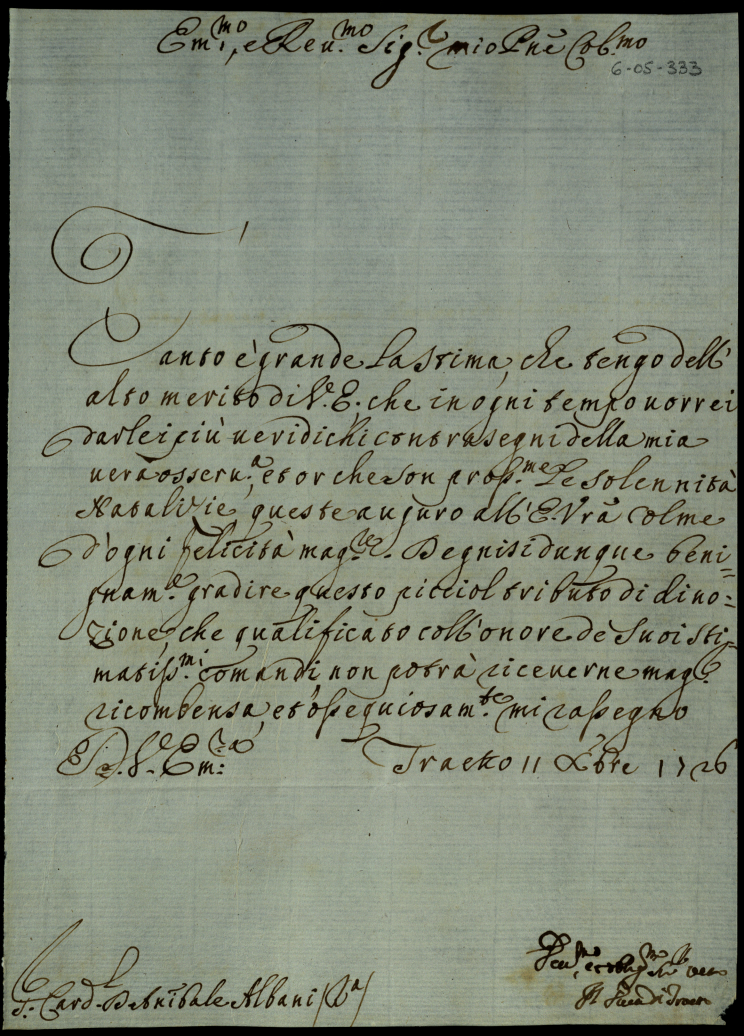 Em.mo, e Reu.mo Sig.r mio Pñe Col.mo
6-05-333
Tanto è grande la stima, che tengo dell'
alto merito di V.E. che in ogni tempo uorrei
darlei più ueridichi contrasegni della mia
uera osseru.a, et or che son pross.me le solennità
Natalizie, queste auguro all'E.Vrã colme
d'ogni felicità mag.re. Degnisi dunque beni=
gnam.e gradire questo picciol tributo di diuo=
zione, che qualificato coll'onore de suoi sti=
matiss.mi comandi non potrà riceuerne mag.r
ricombensa, et ossequiosam.te mi rassegno
D.V.Em.za Traetto 11 Xbre 1726
S. Card. Debnibale Albani (Ra)